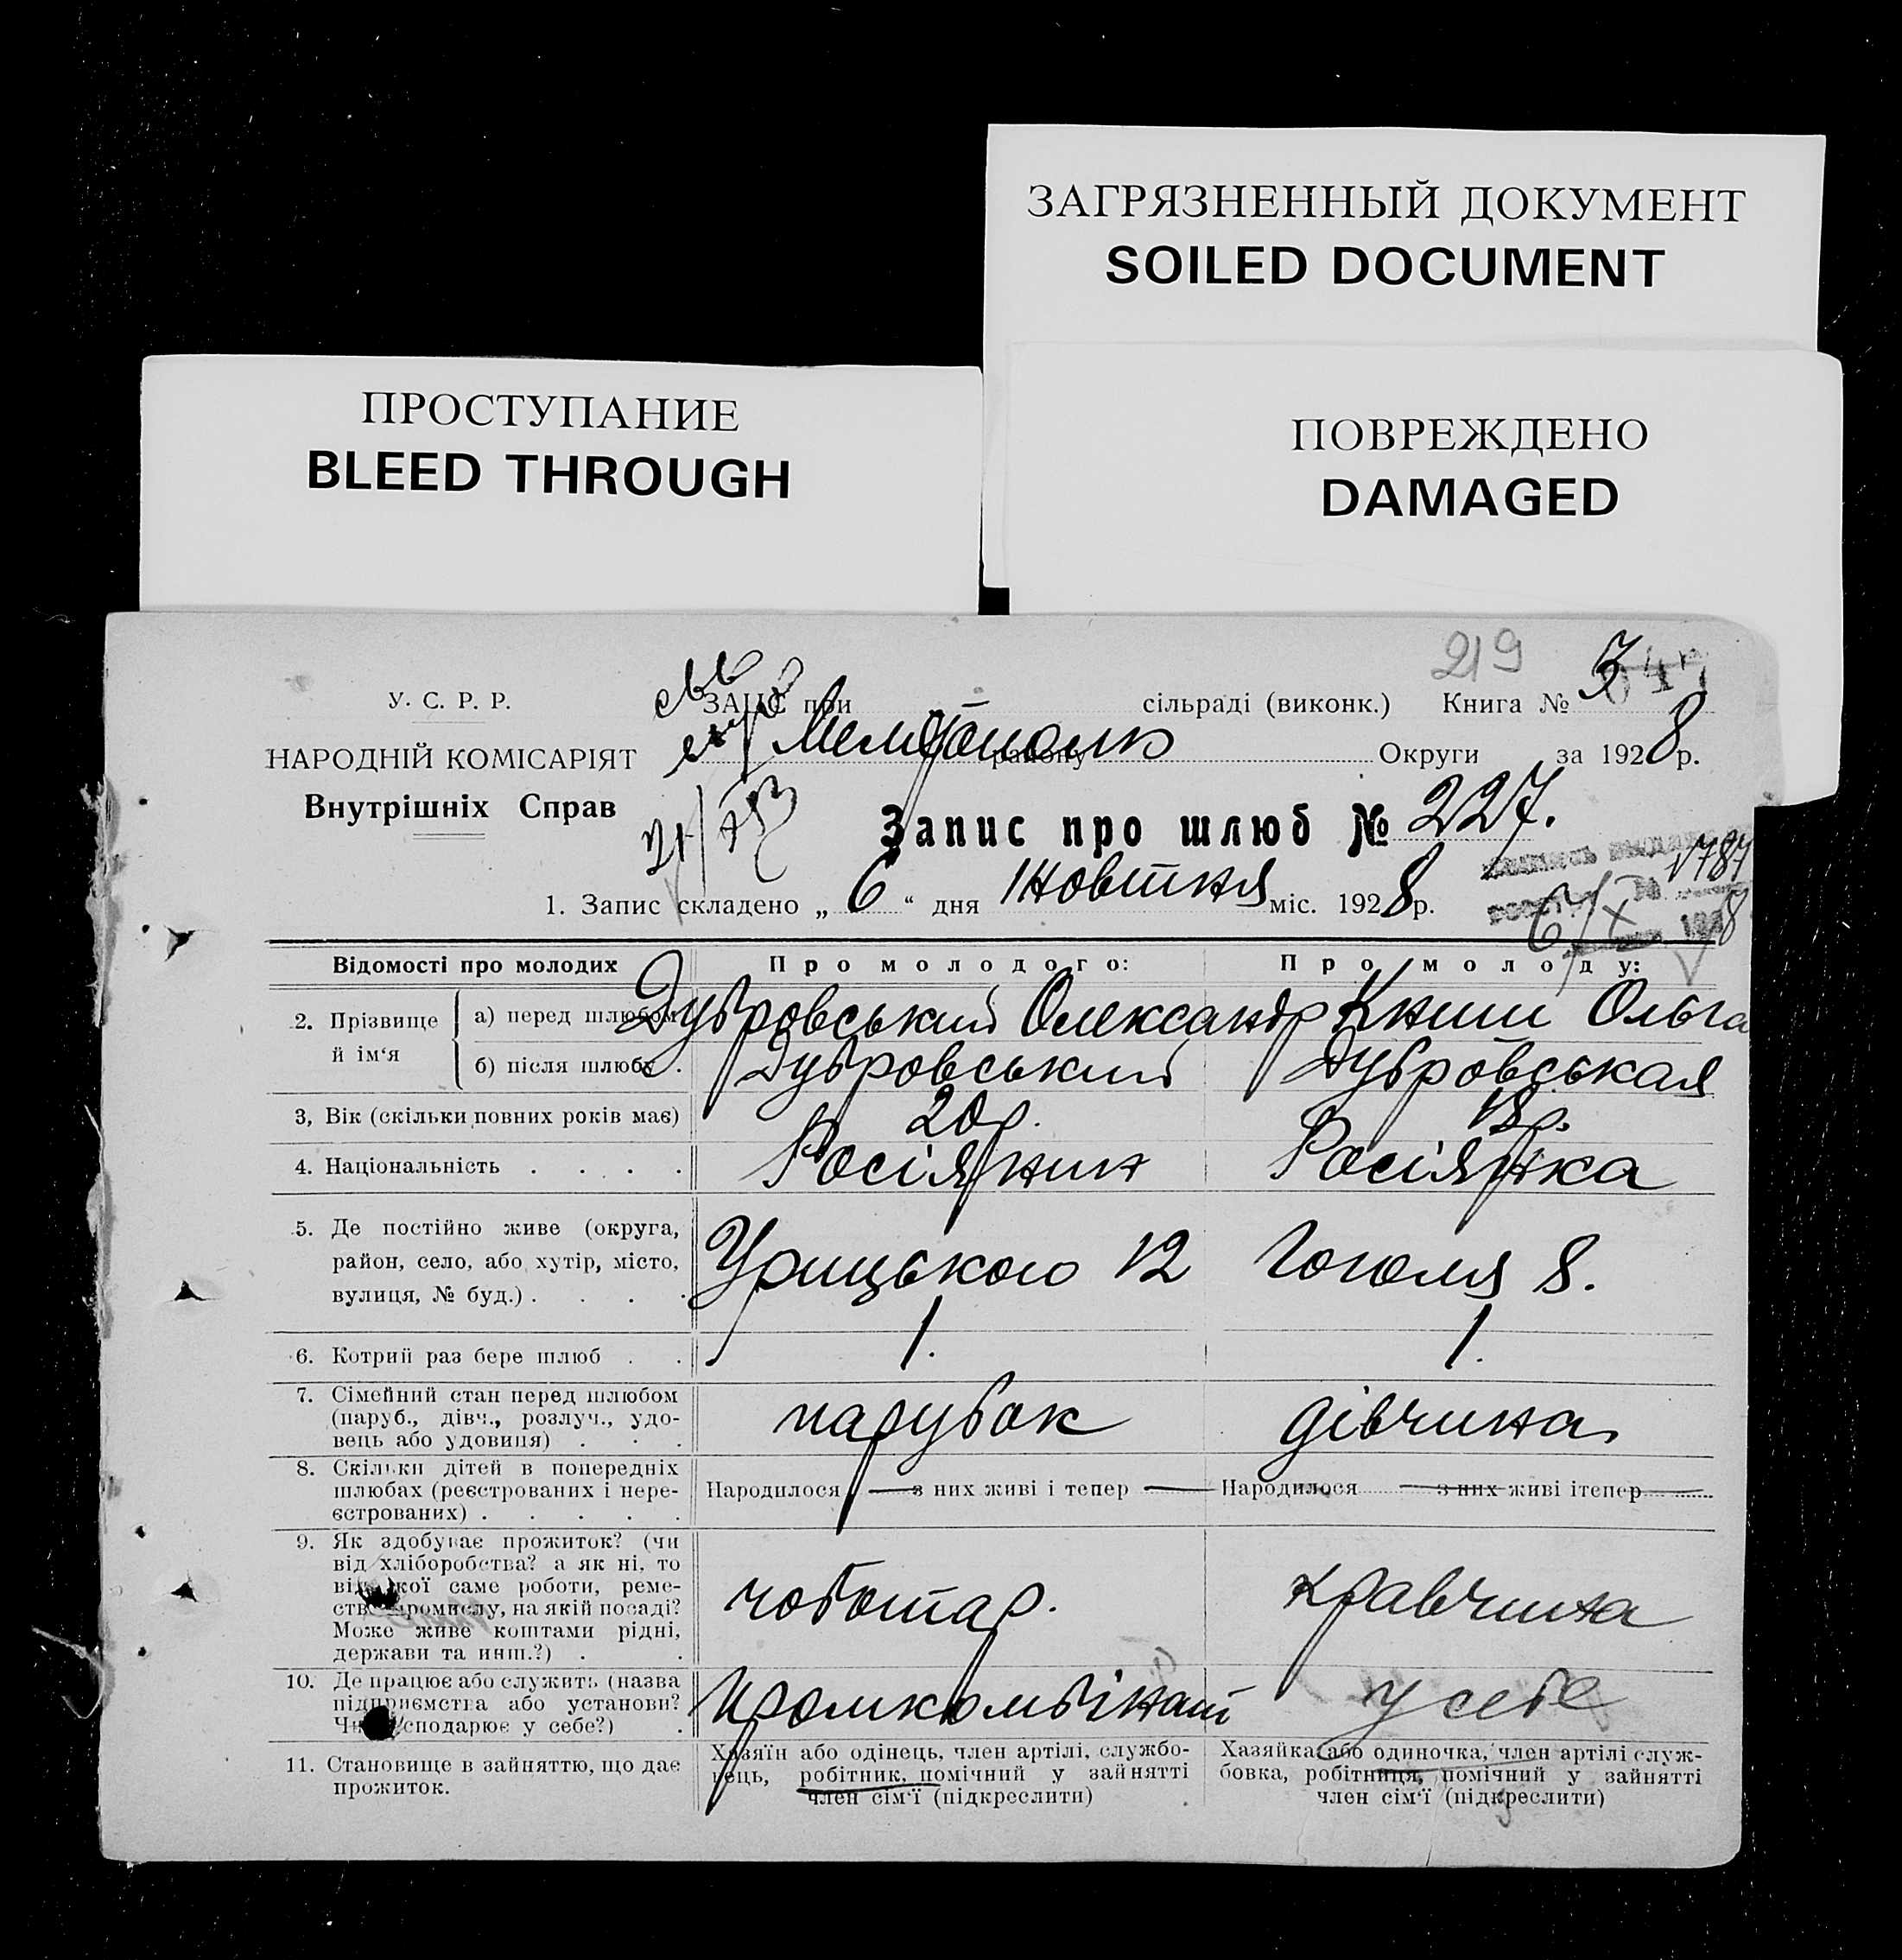 ЗАГРЯЗНЕННЫЙ ДОКУМЕНТ
SOILED DOCUMENT
ПРОСТУПАНИЕ
BLEED THROUGH
ПОВРЕЖДЕНО
DAMAGED
219
У. С. Р. Р.
ЗАГС при сільраді (виконк.) Книга № 3
НАРОДНІЙ КОМІСАРІЯТ
району Округи за 1928 р.
Внутрішніх Справ
Запис про шлюб № 227.
1787
1. Запис складено „ 6 “ дня Жовтня міс. 1928 р.
6/X 1928
Відомості про молодих
Про молодого:
Про молоду:
2. Прізвище й ім‘я
а) перед шлюбом
Дубровський Олександр
Книш Ольга
б) після шлюбу .
Дубровський
Дубровськая
3, Вік (скільки повних років має)
20 р.
18 р.
4. Національність . . . .
Росіянин
Росіянка
5. Де постійно живе (округа,
район, село, або хутір, місто,
вулиця, № буд.) . . . .
Урицького 12
Гоголя 8.
6. Котрий раз бере шлюб . .
1.
1.
7. Сімейний стан перед шлюбом
(паруб., дівч., розлуч., удо-
вець або удовиця) . . .
парубок
дівчина
8. Скільки дітей в попередніх
шлюбах (реєстрованих і нере-
єстрованих) . . . . .
Народилося — з них живі і тепер —
Народилося — з них живі ітепер —
9. Як здобуває прожиток? (чи
від хліборобства? а як ні, то
від якої саме роботи, реме-
ства промислу, на якій посаді?
Може живе коштами рідні,
держави та инш.?) . .
чоботар.
кравчиха
10. Де працює або служить (назва
підприємства або установи?
Чи господарює у себе?) .
Промкомбінат
у себе
11. Становище в зайняттю, що дає
прожиток.
Хазяїн або одінець, член артілі, службо-
вець, робітник, помічний у зайнятті
член сім‘ї (підкреслити)
Хазяйка або одиночка, член артілі служ-
бовка, робітниця, помічний у зайнятті
член сім‘ї (підкреслити)